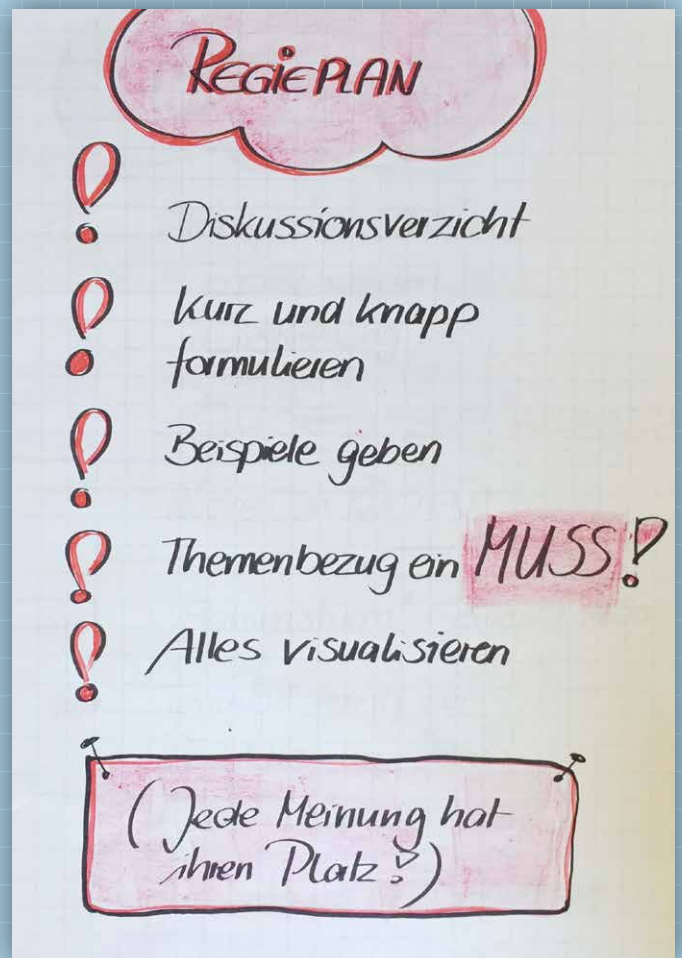 REGiEPLAN
Diskussionsverzicht
Kurz und knapp
formulieren
Beispiele geben
Themenbezug ein MUSS!
Alles visualisieren
(Jede Meinung hat
ihren Platz!)